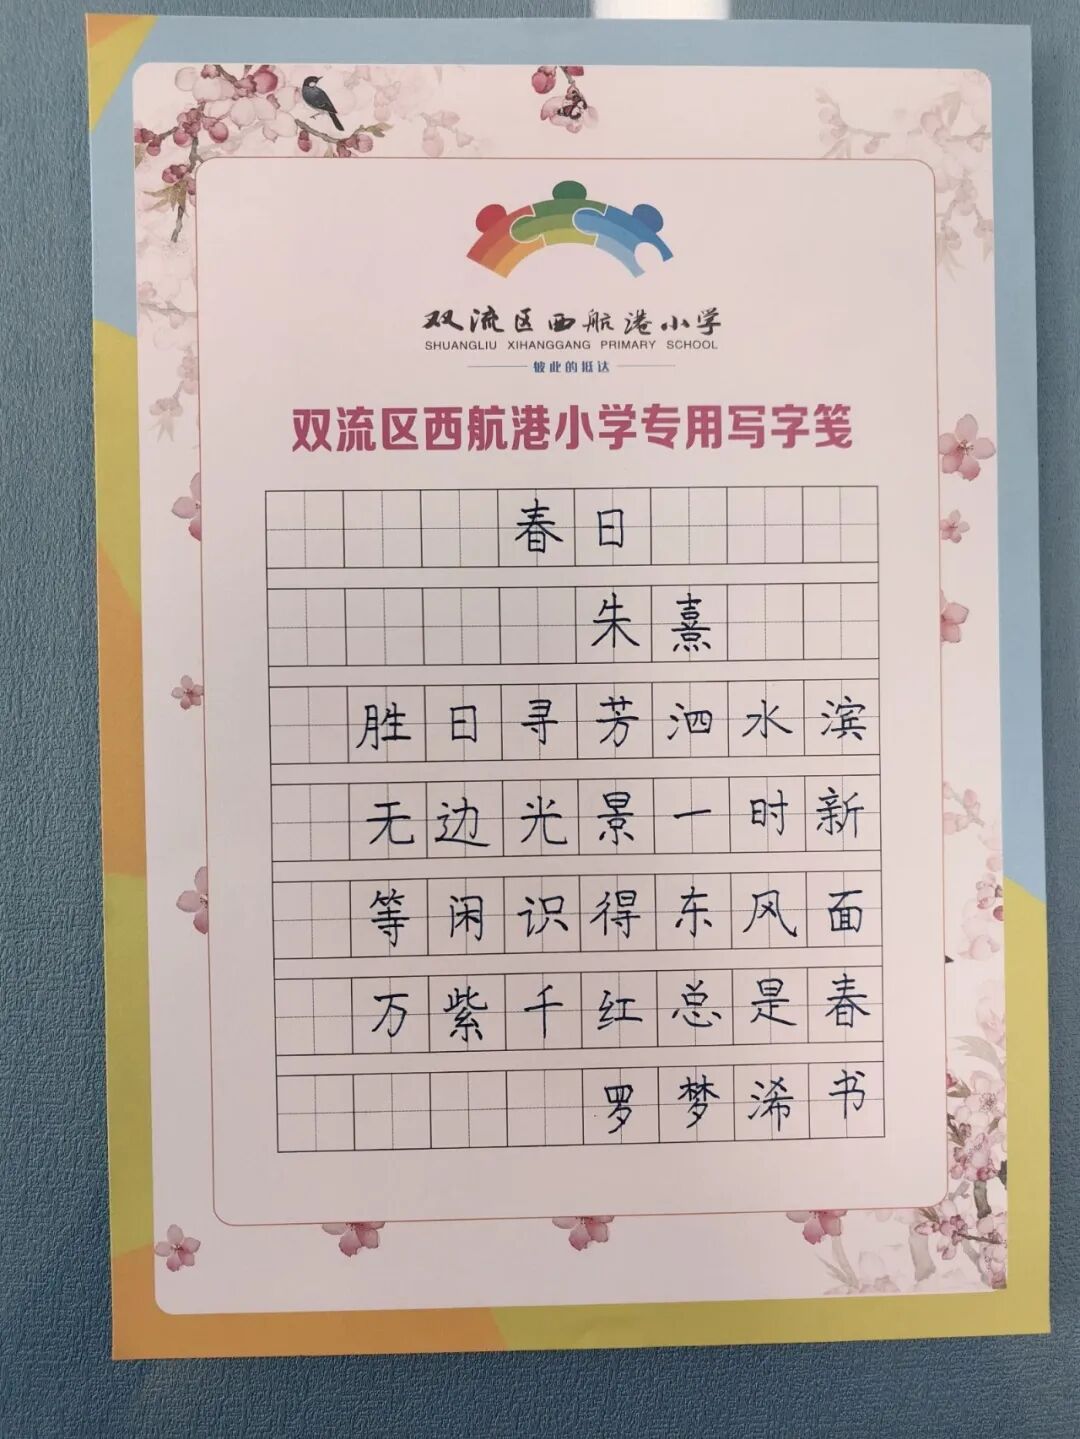 双流区西航港小学
SHUANGLIU XIHANGGANG PRIMARY SCHOOL
彼此的抵达
双流区西航港小学专用写字笺
春日
朱熹
胜日寻芳泗水滨
无边光景一时新
等闲识得东风面
万紫千红总是春
罗梦浠书